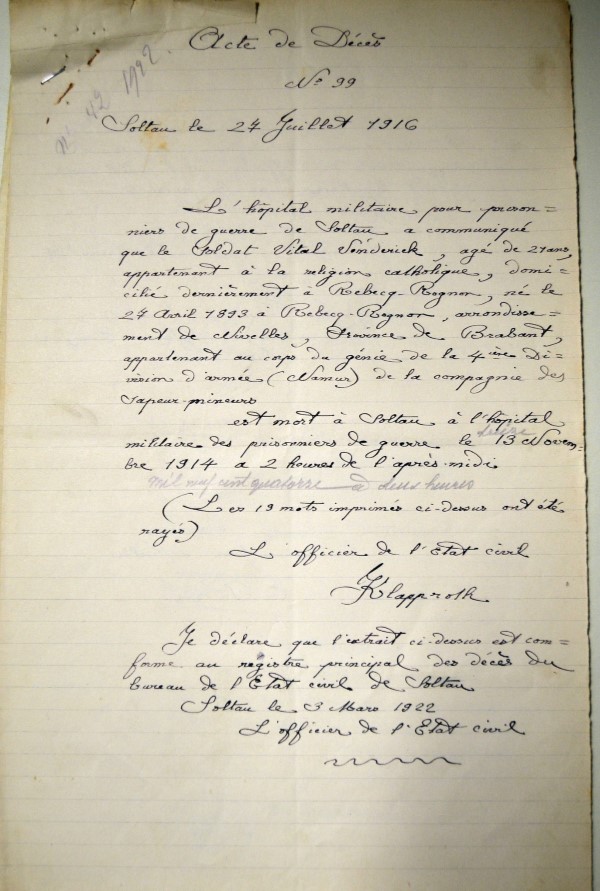 Acte de Décès
No 99
No 42 1922.
Soltau le 24 Juillet 1916
L'hôpital militaire pour prison=
niers de guerre de Soltau a communiqué
que le Soldat Vital Venderick, agé de 21 ans,
appartenant à la religion catholique, domi=
cilié dernièrement à Rebecq-Rognon, né le
24 Avril 1893 à Rebecq-Rognon, arrondisse=
ment de Nivelles, Province de Brabant,
appartenant au corps du génie de la 4ième Di=
vision d'armée (Namur) de la compagnie des
Sapeur-mineurs
est mort à Soltau à l'hôpital
militaire des prisonniers de guerre le 13 Novem=
bre 1914 a 2 heures de l'après-midi
mil neuf cent quatorze à deux heures
(Les 19 mots imprimés ci-dessus ont été
rayés)
L'officier de l'Etat civil
Klapproth
Je déclare que l'extrait ci-dessus est con=
forme au registre principal des décès du
bureau de l'Etat civil de Soltau
Soltau le 3 Mars 1922
L'officier de l'Etat civil